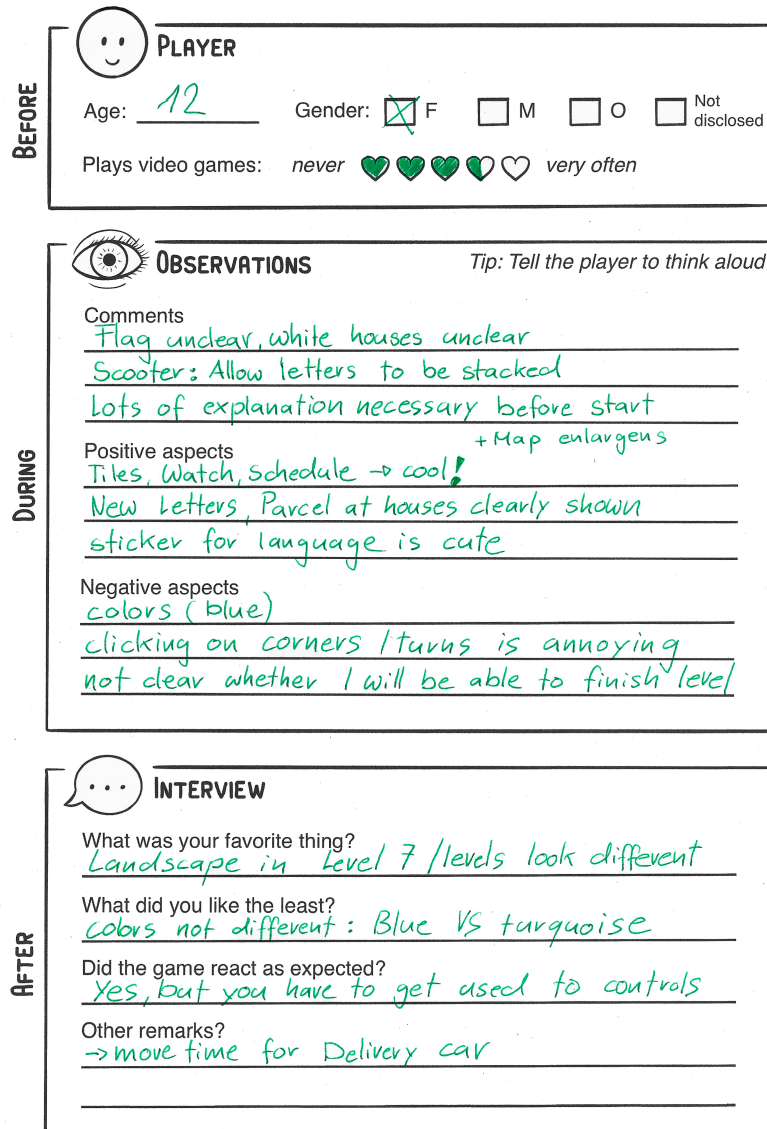 BEFORE
PLAYER
Age: 12 Gender: F M O Not disclosed
Plays video games: never very often
DURING
OBSERVATIONS Tip: Tell the player to think aloud
Comments
Flag unclear, white houses unclear
Scooter: Allow letters to be stacked
Lots of explanation necessary before start
+ Map enlargens
Positive aspects
Tiles, Watch, Schedule → cool!
New Letters, Parcel at houses clearly shown
sticker for language is cute
Negative aspects
colors (blue)
clicking on corners / turns is annoying
not clear whether I will be able to finish level
AFTER
INTERVIEW
What was your favorite thing?
Landscape in Level 7 / levels look different
What did you like the least?
colors not different: Blue VS turquoise
Did the game react as expected?
Yes, but you have to get used to controls
Other remarks?
→ move time for Delivery car